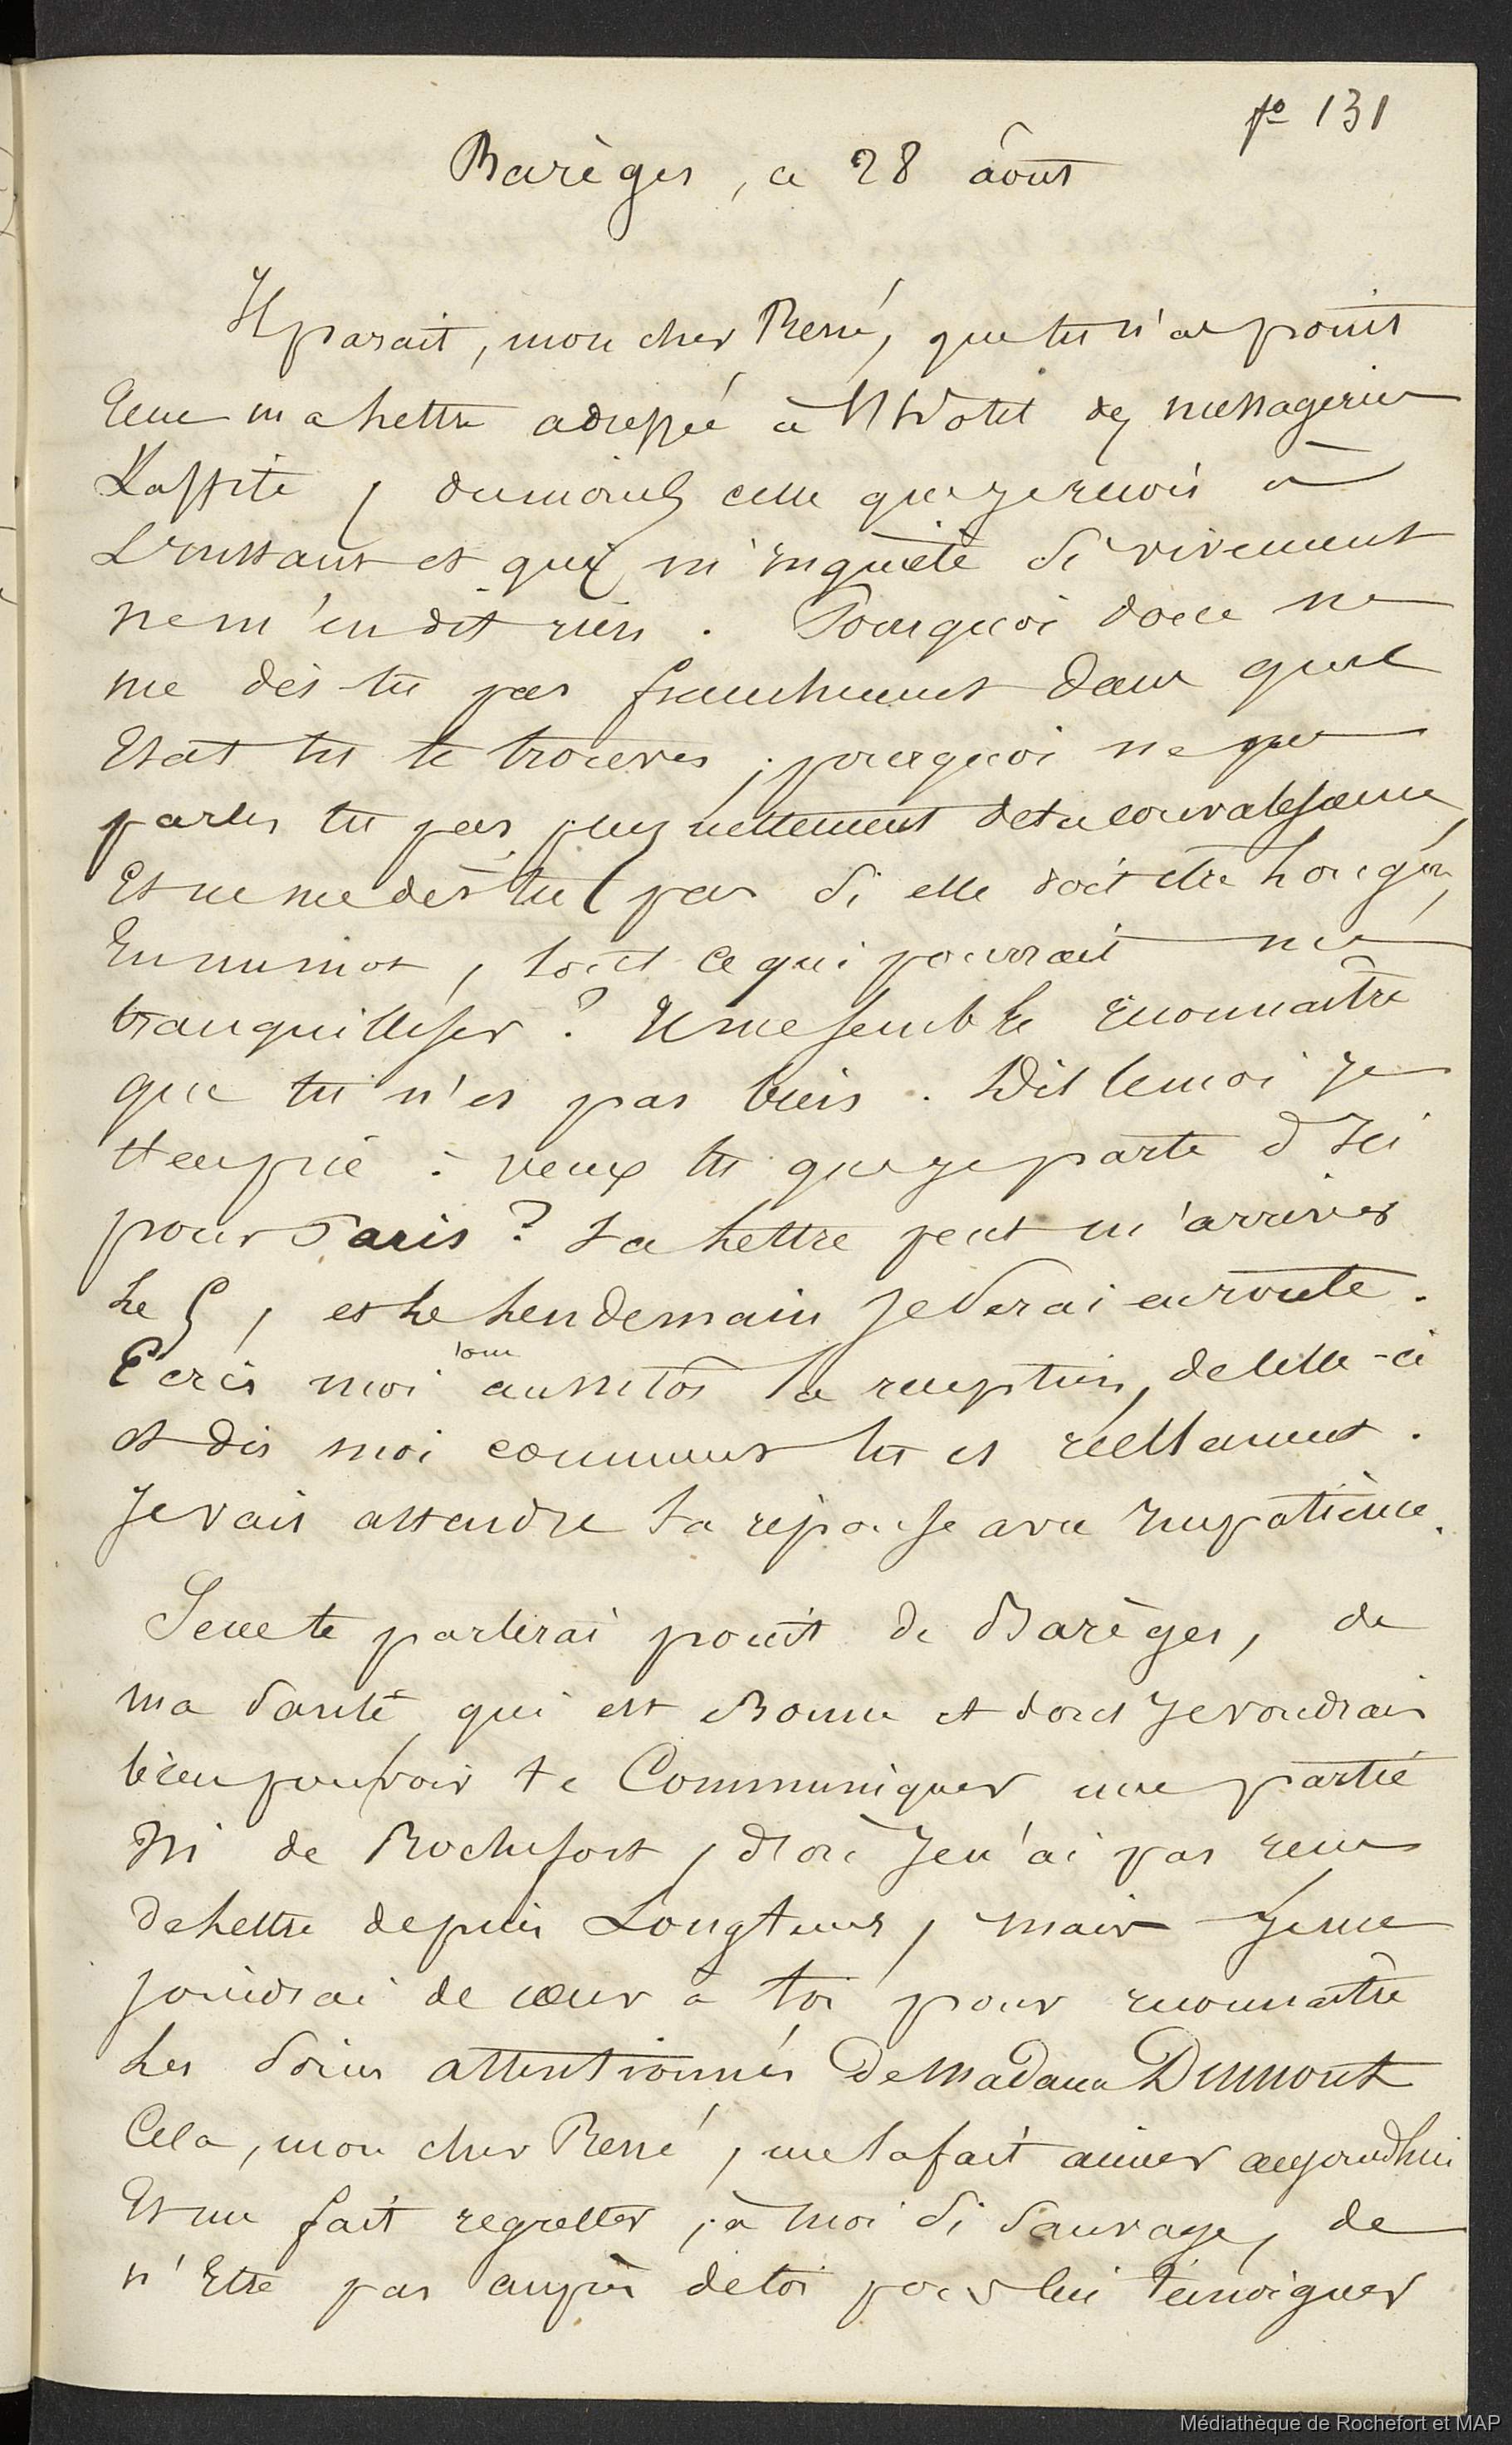 fo 131
Barèges, ce 28 août
Il parait, mon cher René, que tu n'as point
recu ma lettre adressée à l'hotel des messageries
Laffite, du moins celle que je reçois à
L'instant et qui m'inquiète si vivement
ne m'en dit rien. Pourquoi donc ne
me dis-tu pas franchement dans quel
Etat tu te trouves, pourquoi ne me
parles tu pas plus nettement de ta convalessence,
Et ne me dis tu pas si elle doit être longue,
En un mot, tout ce qui pourrait me
tranquilliser ? Il me semble reconnaître
que tu n'es pas bien. Dis le moi je
t'en prie : veux tu que je parte d'Ici
pour Paris ? ta lettre peut m'arriver
le 5, et le lendemain je serai en route.
Ecris moi aussitôt la reception, de celle-ci
et dis moi comment tu es réellement.
Je vais attendre ta réponse avec Impatience.
Je ne te parlerai point de Barèges, de
ma santé qui est Bonne et dont Je voudrais
bien pouvoir te Communiquer une partie
Ni de Rochefort, d'où Je n'ai pas reçu
de lettre depuis Longtems, mais Je me
joindrai de cœur à toi pour reconnaître
les soins attentionnés De Madame Dumont
Cela, mon cher René, me la fait aimer aujourdhui
Et me fait regretter, à moi si sauvage, de
n'Etre pas auprès de toi pour lui témoigner
Médiathèque de Rochefort et MAP